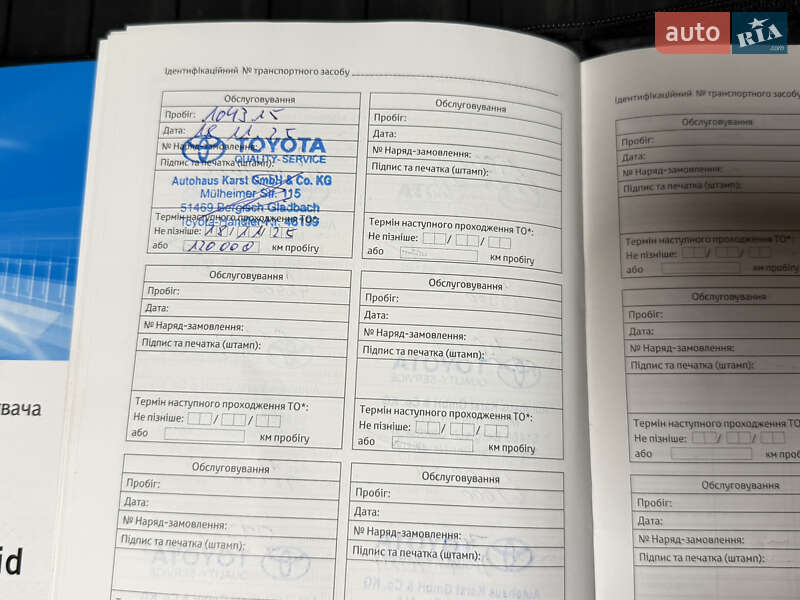 auto RIA .com
Ідентифікаційний № транспортного засобу
Обслуговування
Пробіг: 104315
Дата: 18 11 25
№ Наряд-замовлення:
Підпис та печатка (штамп):
TOYOTA
QUALITY-SERVICE
Autohaus Karst GmbH & Co. KG
Mülheimer Str. 115
51469 Bergisch Gladbach
Toyota-Händler-Nr. 46199
Термін наступного проходження ТО*:
Не пізніше: 18/11/25
або 120000 км пробігу
Обслуговування
Пробіг:
Дата:
№ Наряд-замовлення:
Підпис та печатка (штамп):
Термін наступного проходження ТО*:
Не пізніше: / /
або км пробігу
Обслуговування
Пробіг:
Дата:
№ Наряд-замовлення:
Підпис та печатка (штамп):
Термін наступного проходження ТО*:
Не пізніше: / /
або км пробігу
Обслуговування
Пробіг:
Дата:
№ Наряд-замовлення:
Підпис та печатка (штамп):
Термін наступного проходження ТО*:
Не пізніше: / /
або км пробігу
Обслуговування
Пробіг:
Дата:
№ Наряд-замовлення:
Підпис та печатка (штамп):
Обслуговування
Пробіг:
Дата:
№ Наряд-замовлення:
Підпис та печатка (штамп):
Ідентифікаційний № транспортного засобу
Обслуговування
Пробіг:
Дата:
№ Наряд-замовлення:
Підпис та печатка (штамп):
Термін наступного проходження ТО*:
Не пізніше: / /
або км пробігу
Обслуговування
Пробіг:
Дата:
№ Наряд-замовлення:
Підпис та печатка (штамп):
Термін наступного проходження ТО*:
Не пізніше: / /
або км пробігу
Обслуговування
Пробіг:
Дата:
№ Наряд-замовлення:
Підпис та печатка (штамп):
вача
id